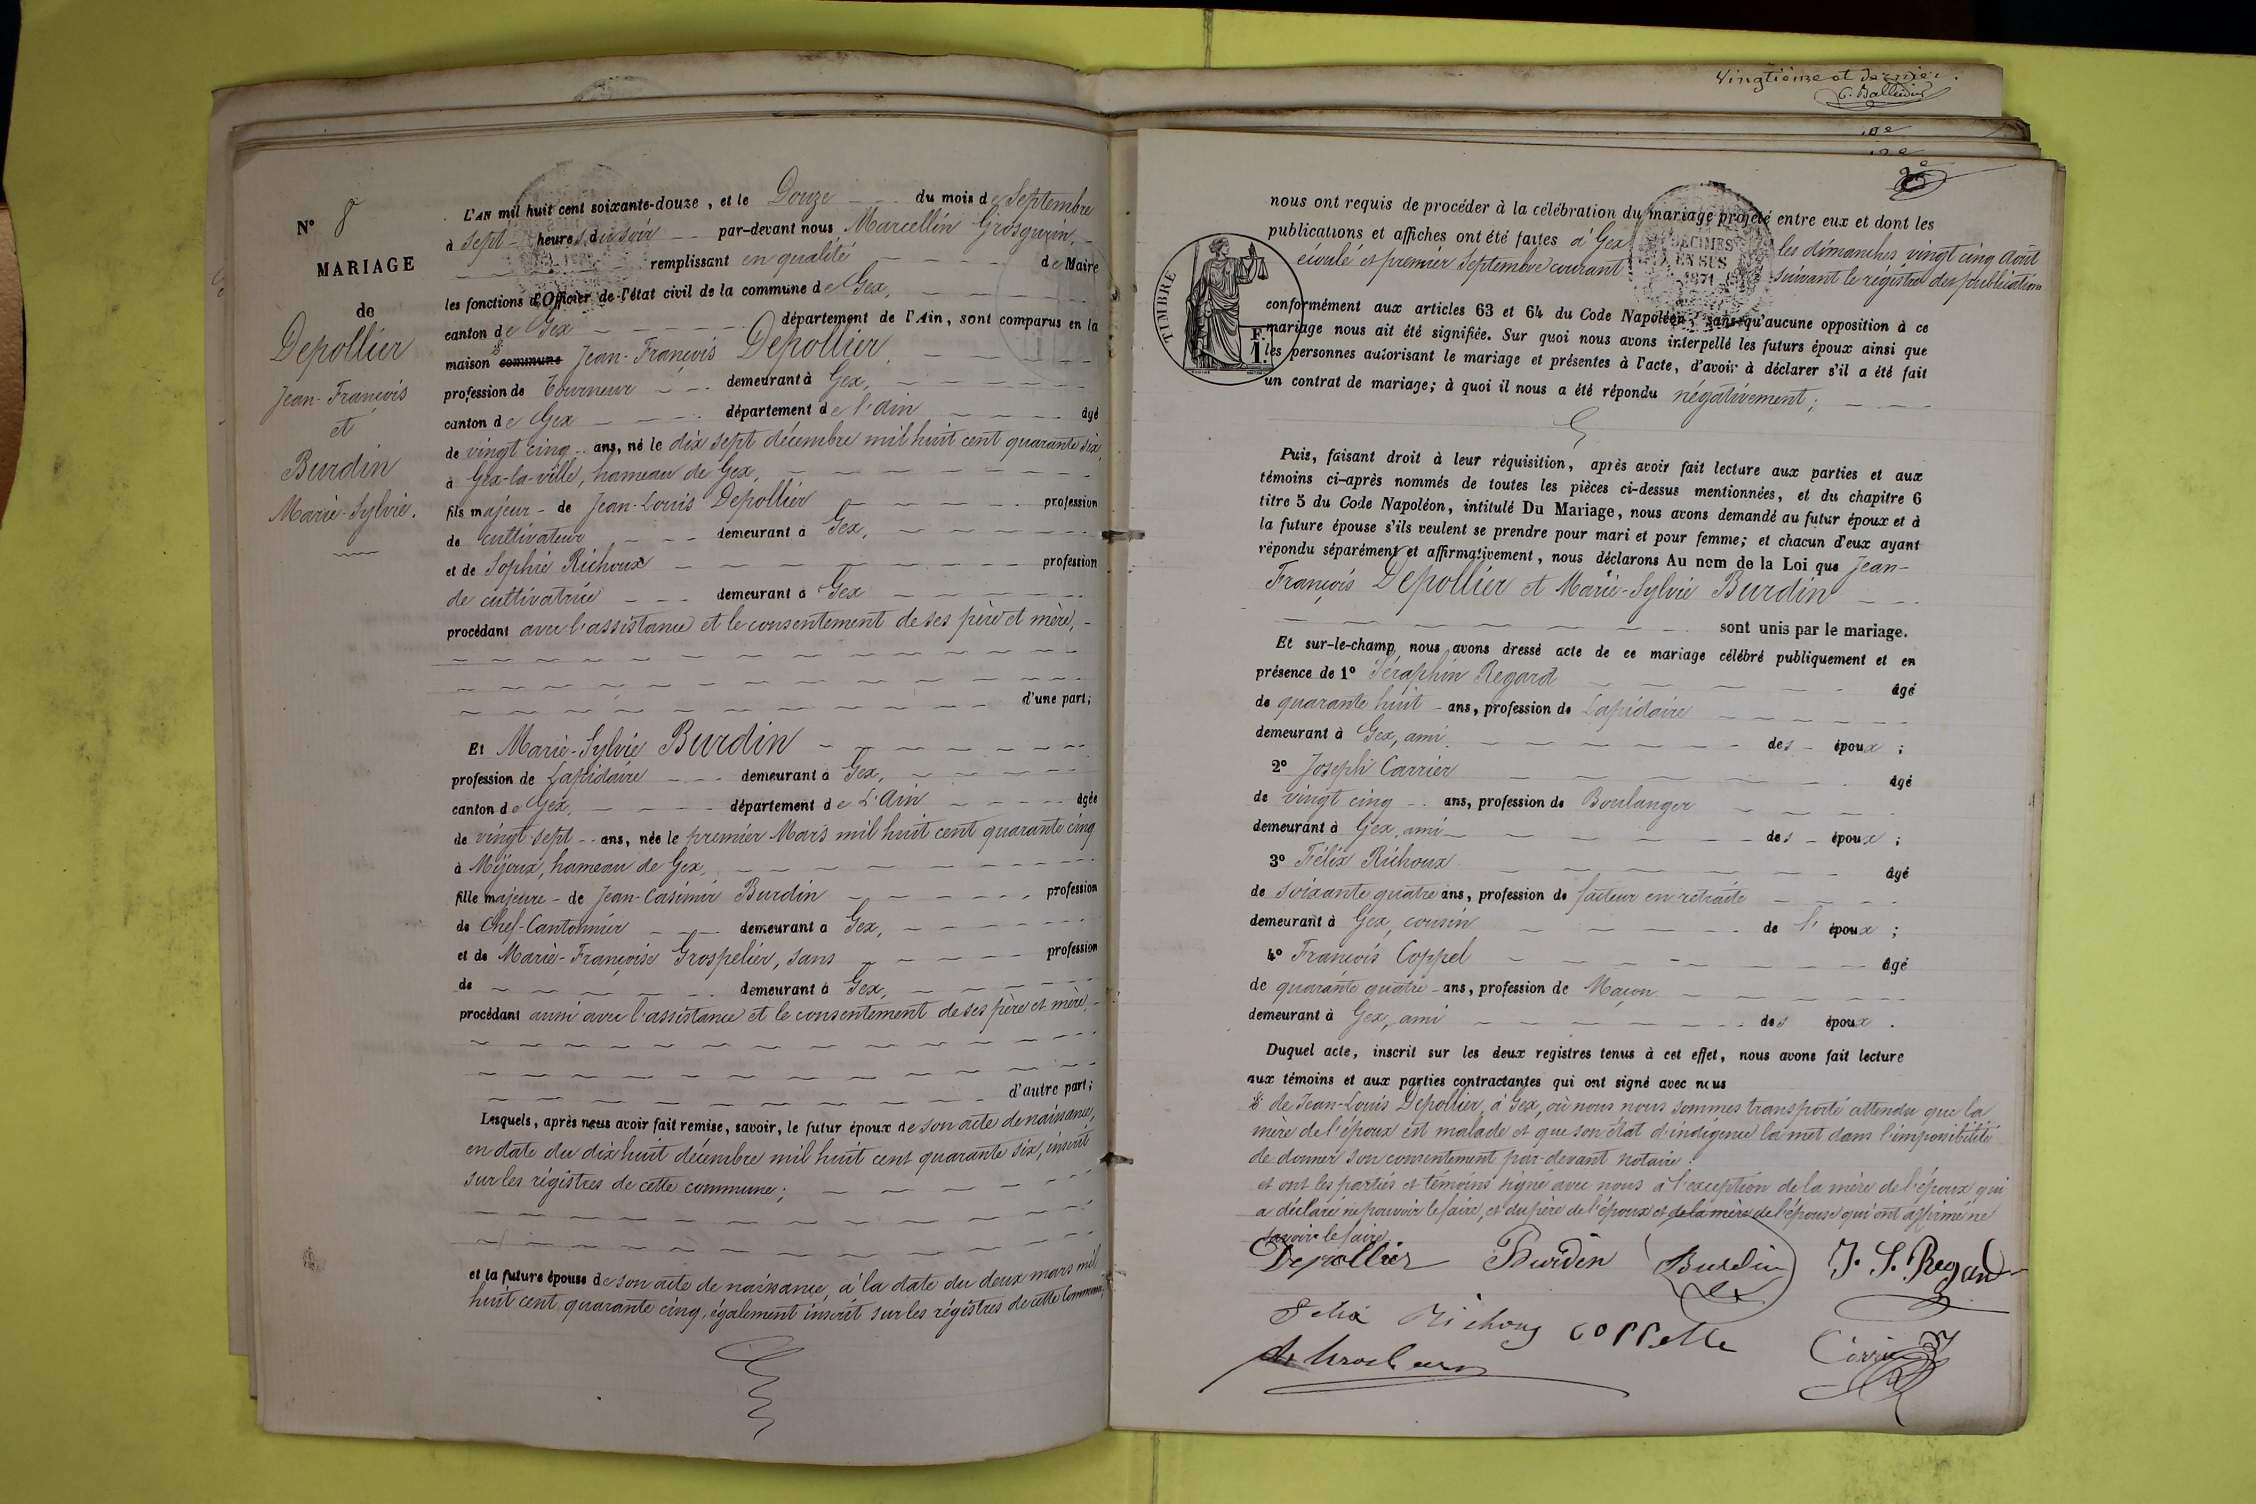 N° 8
MARIAGE
de
Depollier
Jean-François
et
Burdin
Marie-Sylvie.
L'AN mil huit cent soixante-douze, et le Douze du mois de Septembre
à sept heures du soir par-devant nous Marcellin Grosgurin,
remplissant en qualité de Maire
les fonctions d'Officier de l'état civil de la commune de Gex,
canton de Gex département de l'Ain, sont comparus en la
maison commune Jean-François Depollier,
profession de Tourneur demeurant à Gex,
canton de Gex département de l'Ain âgé
de vingt cinq ans, né le dix sept décembre mil huit cent quarante six,
à Gex-la-ville, hameau de Gex,
fils majeur de Jean-Louis Depollier profession
de cultivateur demeurant à Gex,
et de Sophie Richoux profession
de cultivatrice demeurant à Gex
procédant avec l'assistance et le consentement de ses père et mère,
d'une part;
Et Marie-Sylvie Burdin
profession de Lapidaire demeurant à Gex,
canton de Gex, département de L'Ain âgée
de vingt sept ans, née le premier Mars mil huit cent quarante cinq
à Mijoux, hameau de Gex,
fille majeure de Jean-Casimir Burdin profession
de Chef-Cantonnier demeurant à Gex,
et de Marie-Françoise Grospelier, sans profession
de demeurant à Gex,
procédant aussi avec l'assistance et le consentement de ses père et mère,
d'autre part;
Lesquels, après nous avoir fait remise, savoir, le futur époux de son acte de naissance,
en date du dix huit décembre mil huit cent quarante six, inscrit
sur les régistres de cette commune;
et la future épouse de son acte de naissance, à la date du deux mars mil
huit cent quarante cinq, également inscrit sur les régistres de cette Commune,
Vingtième et dernier.
nous ont requis de procéder à la célébration du mariage projeté entre eux et dont les
publications et affiches ont été faites à Gex les dimanches vingt cinq Août
écoulé et premier Septembre courant suivant le régistre des publications
TIMBRE
1 F.
DÉCIMES
EN SUS
1871
conformément aux articles 63 et 64 du Code Napoléon, sans qu'aucune opposition à ce
mariage nous ait été signifiée. Sur quoi nous avons interpellé les futurs époux ainsi que
les personnes autorisant le mariage et présentes à l'acte, d'avoir à déclarer s'il a été fait
un contrat de mariage; à quoi il nous a été répondu négativement;
Puis, faisant droit à leur réquisition, après avoir fait lecture aux parties et aux
témoins ci-après nommés de toutes les pièces ci-dessus mentionnées, et du chapitre 6
titre 5 du Code Napoléon, intitulé Du Mariage, nous avons demandé au futur époux et à
la future épouse s'ils veulent se prendre pour mari et pour femme; et chacun d'eux ayant
répondu séparément et affirmativement, nous déclarons Au nom de la Loi que Jean-
François Depollier et Marie-Sylvie Burdin
sont unis par le mariage.
Et sur-le-champ, nous avons dressé acte de ce mariage célébré publiquement et en
présence de 1° Séraphin Regard âgé
de quarante huit ans, profession de Lapidaire
demeurant à Gex, ami des époux;
2° Joseph Carrier âgé
de vingt cinq ans, profession de Boulanger
demeurant à Gex, ami des époux;
3° Félix Richoux âgé
de soixante quatre ans, profession de facteur en retraite
demeurant à Gex, cousin de l'époux;
4° François Coppel âgé
de quarante quatre ans, profession de Maçon
demeurant à Gex, ami des époux.
Duquel acte, inscrit sur les deux registres tenus à cet effet, nous avons fait lecture
aux témoins et aux parties contractantes qui ont signé avec nous
de Jean-Louis Depollier, à Gex, où nous nous sommes transporté attendu que la
mère de l'époux est malade et que son état d'indigence la met dans l'impossibilité
de donner son consentement par-devant notaire:
et ont les parties et témoins signé avec nous à l'exception de la mère de l'époux qui
a déclaré ne pouvoir le faire, et du père de l'époux et de la mère de l'épouse qui ont affirmé ne
savoir le faire
Depollier Burdin Burdin J. S. Regard
Félix Richoux COPPelle Carrier